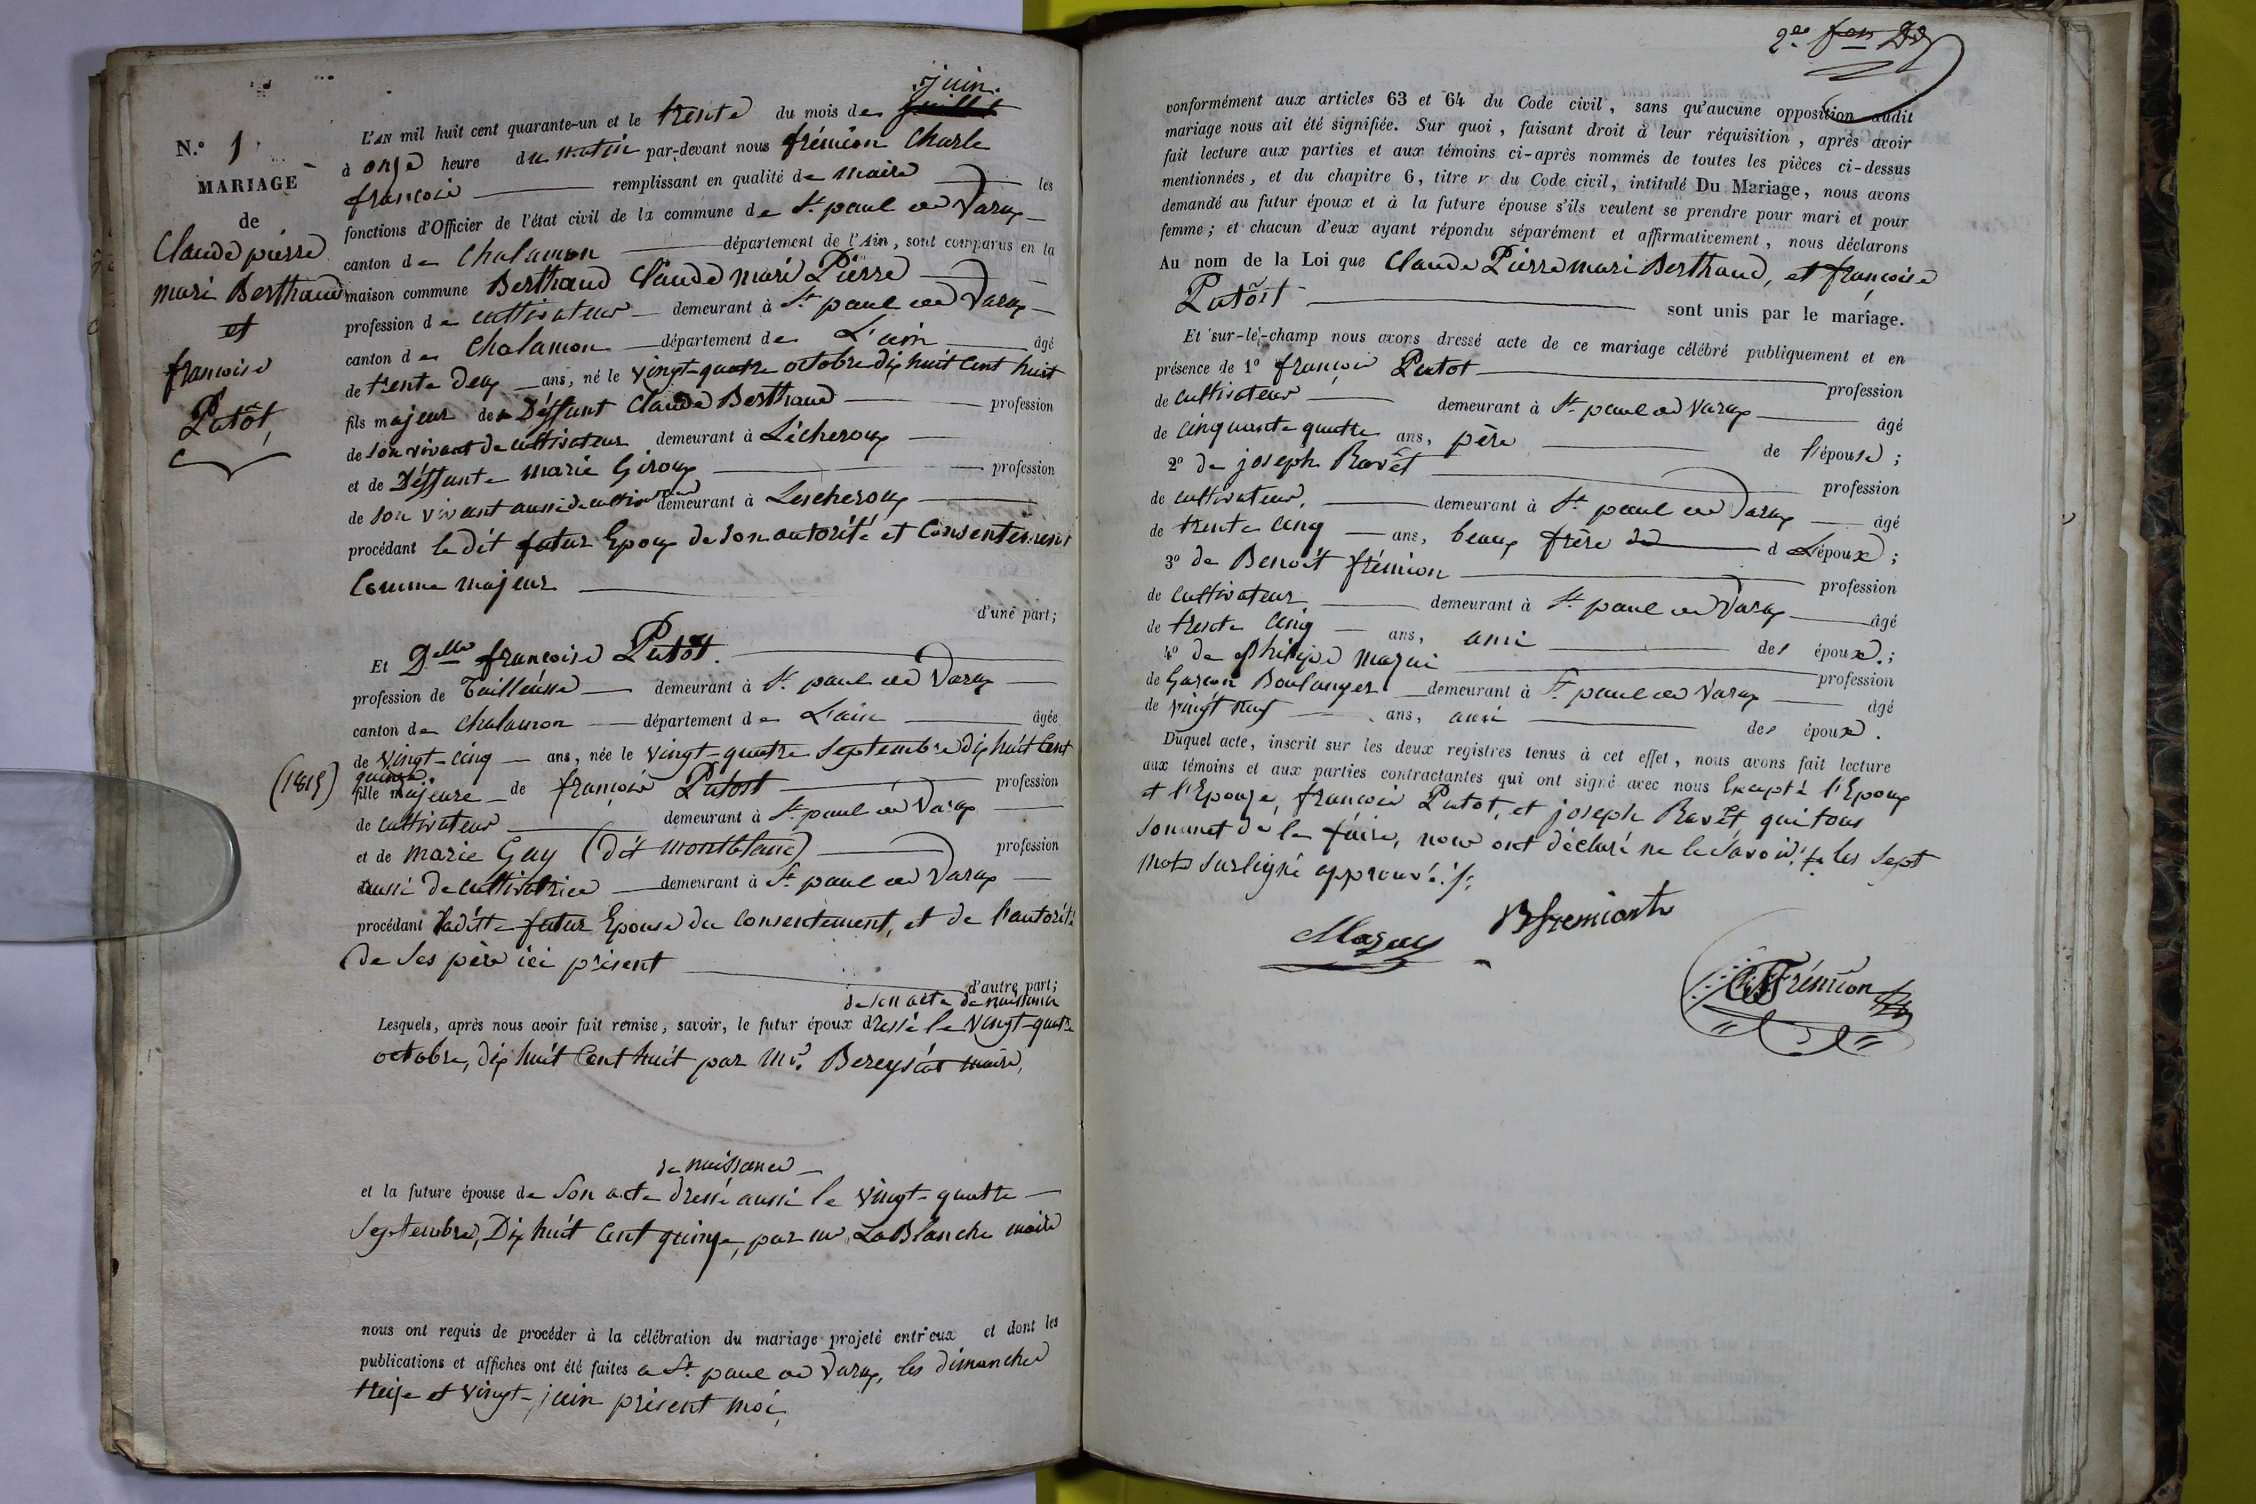 N.º 1.
MARIAGE
de
Claude pierre
mari Berthaud
et
francoise
Putôt,
(1815)
juin.
L'AN mil huit cent quarante-un et le trente du mois de juillet
à onze heure du matin par-devant nous frémion Charle
francois remplissant en qualité de maire les
fonctions d'Officier de l'état civil de la commune de St. paul de Varax
canton de Chalamon département de l'Ain, sont comparus en la
maison commune Berthaud Claude mari Pierre
profession de cultivateur demeurant à St. paul de Varax
canton de Chalamon département de L'ain âgé
de trente deux ans, né le vingt-quatre octobre dix huit Cent huit
fils majeur de Déffunt Claude Berthaud profession
de son vivant de cultivateur demeurant à Lécheroux
et de Déffunte marie Giroux profession
de son vivant aussi de cultivateur demeurant à Lescheroux
procédant le dit futur Epoux de son autorité et Consentement
Comme majeur
d'une part;
Et Delle francoise Putôt.
profession de Tailleuse demeurant à St. paul de Varax
canton de Chalamon département de L'ain âgée
de vingt-cinq ans, née le vingt-quatre Septembre dix huit Cent
quinze.
fille majeure de françois Putost profession
de cultivateur demeurant à St. paul de Varax
et de marie Gay (dit montblanc) profession
aussi de cultivatrice demeurant à St. paul de Varax
procédant laditte futur Epouse du Consentement, et de l'autorité
de ses père ici présent
d'autre part;
de son acte de naissance
Lesquels, après nous avoir fait remise, savoir, le futur époux dressé le vingt-quatre
octobre, dix huit Cent huit par Mr. Bereyziat maire,
de naissance
et la future épouse de son acte dressé aussi le vingt-quatre
Septembre, Dix huit Cent quinze, par mr LaBlanche maire
nous ont requis de procéder à la célébration du mariage projeté entr'eux et dont les
publications et affiches ont été faites a St. paul de Varax, les dimanche
treize et vingt-juin présent moi,
2e fen
conformément aux articles 63 et 64 du Code civil, sans qu'aucune opposition audit
mariage nous ait été signifiée. Sur quoi, faisant droit à leur réquisition, après avoir
fait lecture aux parties et aux témoins ci-après nommés de toutes les pièces ci-dessus
mentionnées, et du chapitre 6, titre v du Code civil, intitulé Du Mariage, nous avons
demandé au futur époux et à la future épouse s'ils veulent se prendre pour mari et pour
femme; et chacun d'eux ayant répondu séparément et affirmativement, nous déclarons
Au nom de la Loi que Claude Pierre mari Berthaud, et françoise
Putôst sont unis par le mariage.
Et sur-le-champ nous avons dressé acte de ce mariage célébré publiquement et en
présence de 1º françois Putot profession
de cultivateur demeurant à St. paul de Varax âgé
de cinquante quatre ans, père de l'épouse;
2º de joseph Ravet profession
de cultivateur. demeurant à St. paul de Varax âgé
de trente cinq ans, beaux frère d L'époux;
3º de Benoit frémion profession
de cultivateur demeurant à St. paul de Varax âgé
de trente cinq ans, ami des époux.;
4º de philipe mazui profession
de Garcon Boulanger demeurant à St. paul de Varax âgé
de vingt neuf ans, ami des époux.
Duquel acte, inscrit sur les deux registres tenus à cet effet, nous avons fait lecture
aux témoins et aux parties contractantes qui ont signé avec nous Excepté l'Epoux
et l'Epouze, françois Putot, et joseph Ravet qui tous
sommet dé le faire, nous ont déclaré ne le savoir. les sept
mots surligné approuvé.
Mazuy
B fremiont
CF Frémion